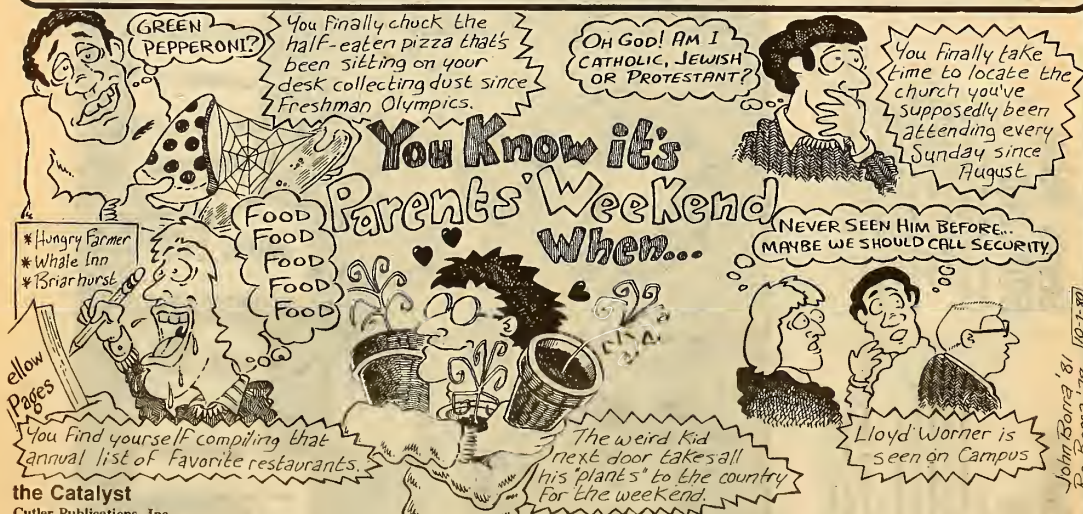 GREEN
PEPPERONI?
You finally chuck the
half-eaten pizza that's
been sitting on your
desk collecting dust since
Freshman Olympics.
OH GOD! AM I
CATHOLIC, JEWISH
OR PROTESTANT?
You finally take
time to locate the
church you've
supposedly been
attending every
Sunday since
August
You Know it's
Parents' Weekend
When...
* Hungry Farmer
* Whale Inn
* Briarhurst
FOOD
FOOD
FOOD
FOOD
FOOD
ellow
Pages
You find yourself compiling that
annual list of favorite restaurants.
The weird kid
next door takes all
his "plants" to the country
for the weekend.
NEVER SEEN HIM BEFORE...
MAYBE WE SHOULD CALL SECURITY.
Lloyd Worner is
seen on Campus
John Borra '81
the Catalyst
Cutler Publications, Inc.